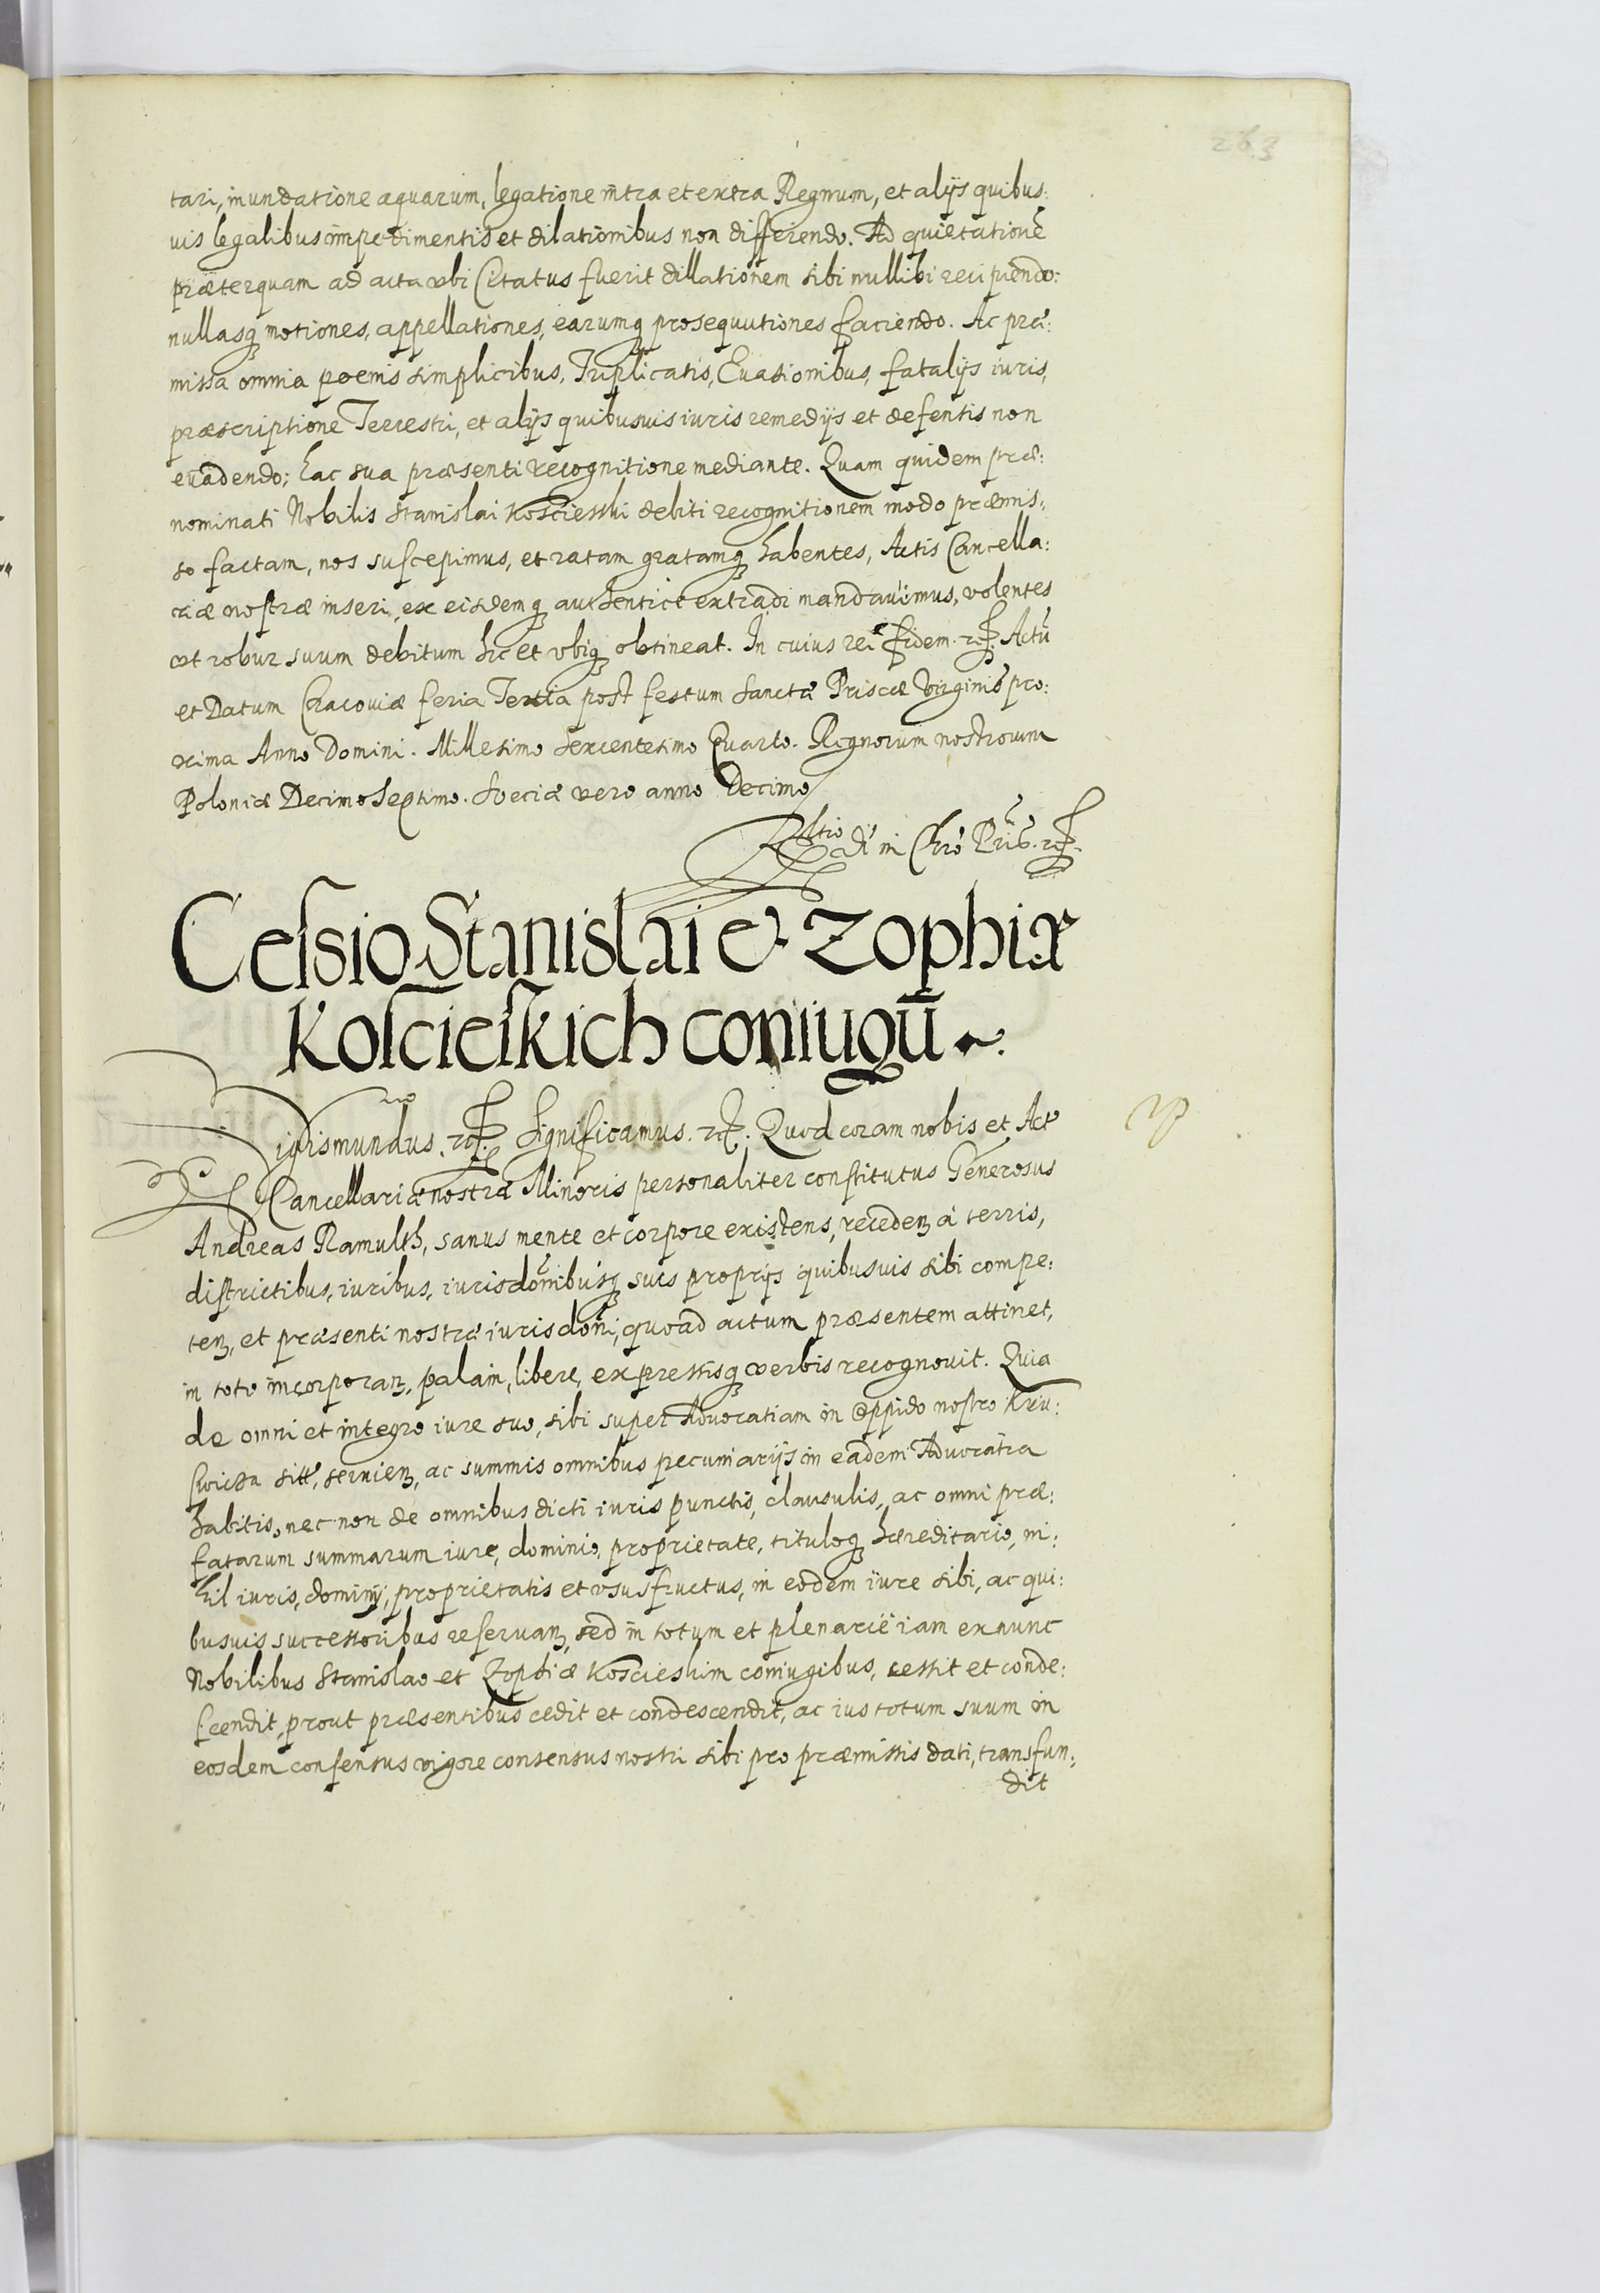 263
tari, inundatione aquarum, legatione intra et extra Regnum, et alijs quibus:
uis legalibus impedimentis et dilationibus non differendo. Ad quietationē
præterquam ad acta vbi Citatus fuerit dillationem sibi nullibi recipiendo:
nullasq motiones, appellationes, earumq prosequutiones faciendo. Ac præ:
missa omnia poenis simplicibus, Triplicatis, Euasionibus, fatalijs iuris,
præscriptione Terrestri, et alijs quibusuis iuris remedijs et defensis non
euadendo; hac sua præsenti recognitione mediante. Quam quidem præ:
nominati Nobilis Stanislai Kosciesski debiti recognitionem modo præmis:
so factam, nos suscepimus, et ratam gratamq habentes, Actis Cancella:
riæ nostræ inseri, ex eisdemq authentice extradi mandauimus, volentes
vt robur suum debitum hic et vbiq obtineat. In cuius rei fidem. Actū
et Datum Cracouiæ feria Tertia post festum Sanctæ Priscæ Virginis pro:
xima Anno Domini. Millesimo Sexcentesimo Quarto. Regnorum nostrorum
Poloniæ Decimo Septimo. Sveciæ vero anno Decimo
in Chrō
Cessio Stanislai & Zophiæ
Koscieskich coniugū
Sigismundus. Significamus. Quod coram nobis et Act
Cancellariæ nostræ Minoris personaliter constitutus Generosus
Andreas Ramulth, sanus mente et corpore existens, receden à terris,
districtibus, iuribus, iurisdōnibusq suis proprijs quibusuis sibi compe:
ten, et præsenti nostræ iurisdōni, quoad actum præsentem attinet,
in toto incorporan, palam, libere, expressisq verbis recognouit. Quia
de omni et integro iure suo, sibi super Aduocatiam in Oppido nostro
sitt, seruien, ac summis omnibus pecuniarijs in eadem Aduocatia
habitis, nec non de omnibus dicti iuris punctis, clausulis, ac omni præ:
fatarum summarum iure, dominio, proprietate, tituloq hæreditario, ni:
hil iuris, dominij, proprietatis et vsusfructus, in eodem iure sibi, ac qui:
busuis successoribus reseruan, sed in totum et plenarie iam exnunc
Nobilibus Stanislao et Zophiæ Koscieskim coniugibus, cessit et conde:
scendit, prout præsentibus cedit et condescendit, ac ius totum suum in
eosdem consensus vigore consensus nostri sibi pro præmissis dati, transfun:
dit